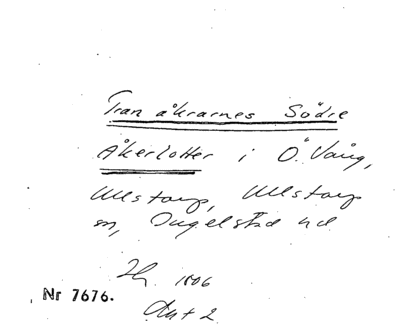 Tranåkrarnes Södre
Åkerlotter i Ö. Vång,
Ullstorp, Ullstorp
sn, Ingelstad hd
1806
Nr 7676.
Akt 2